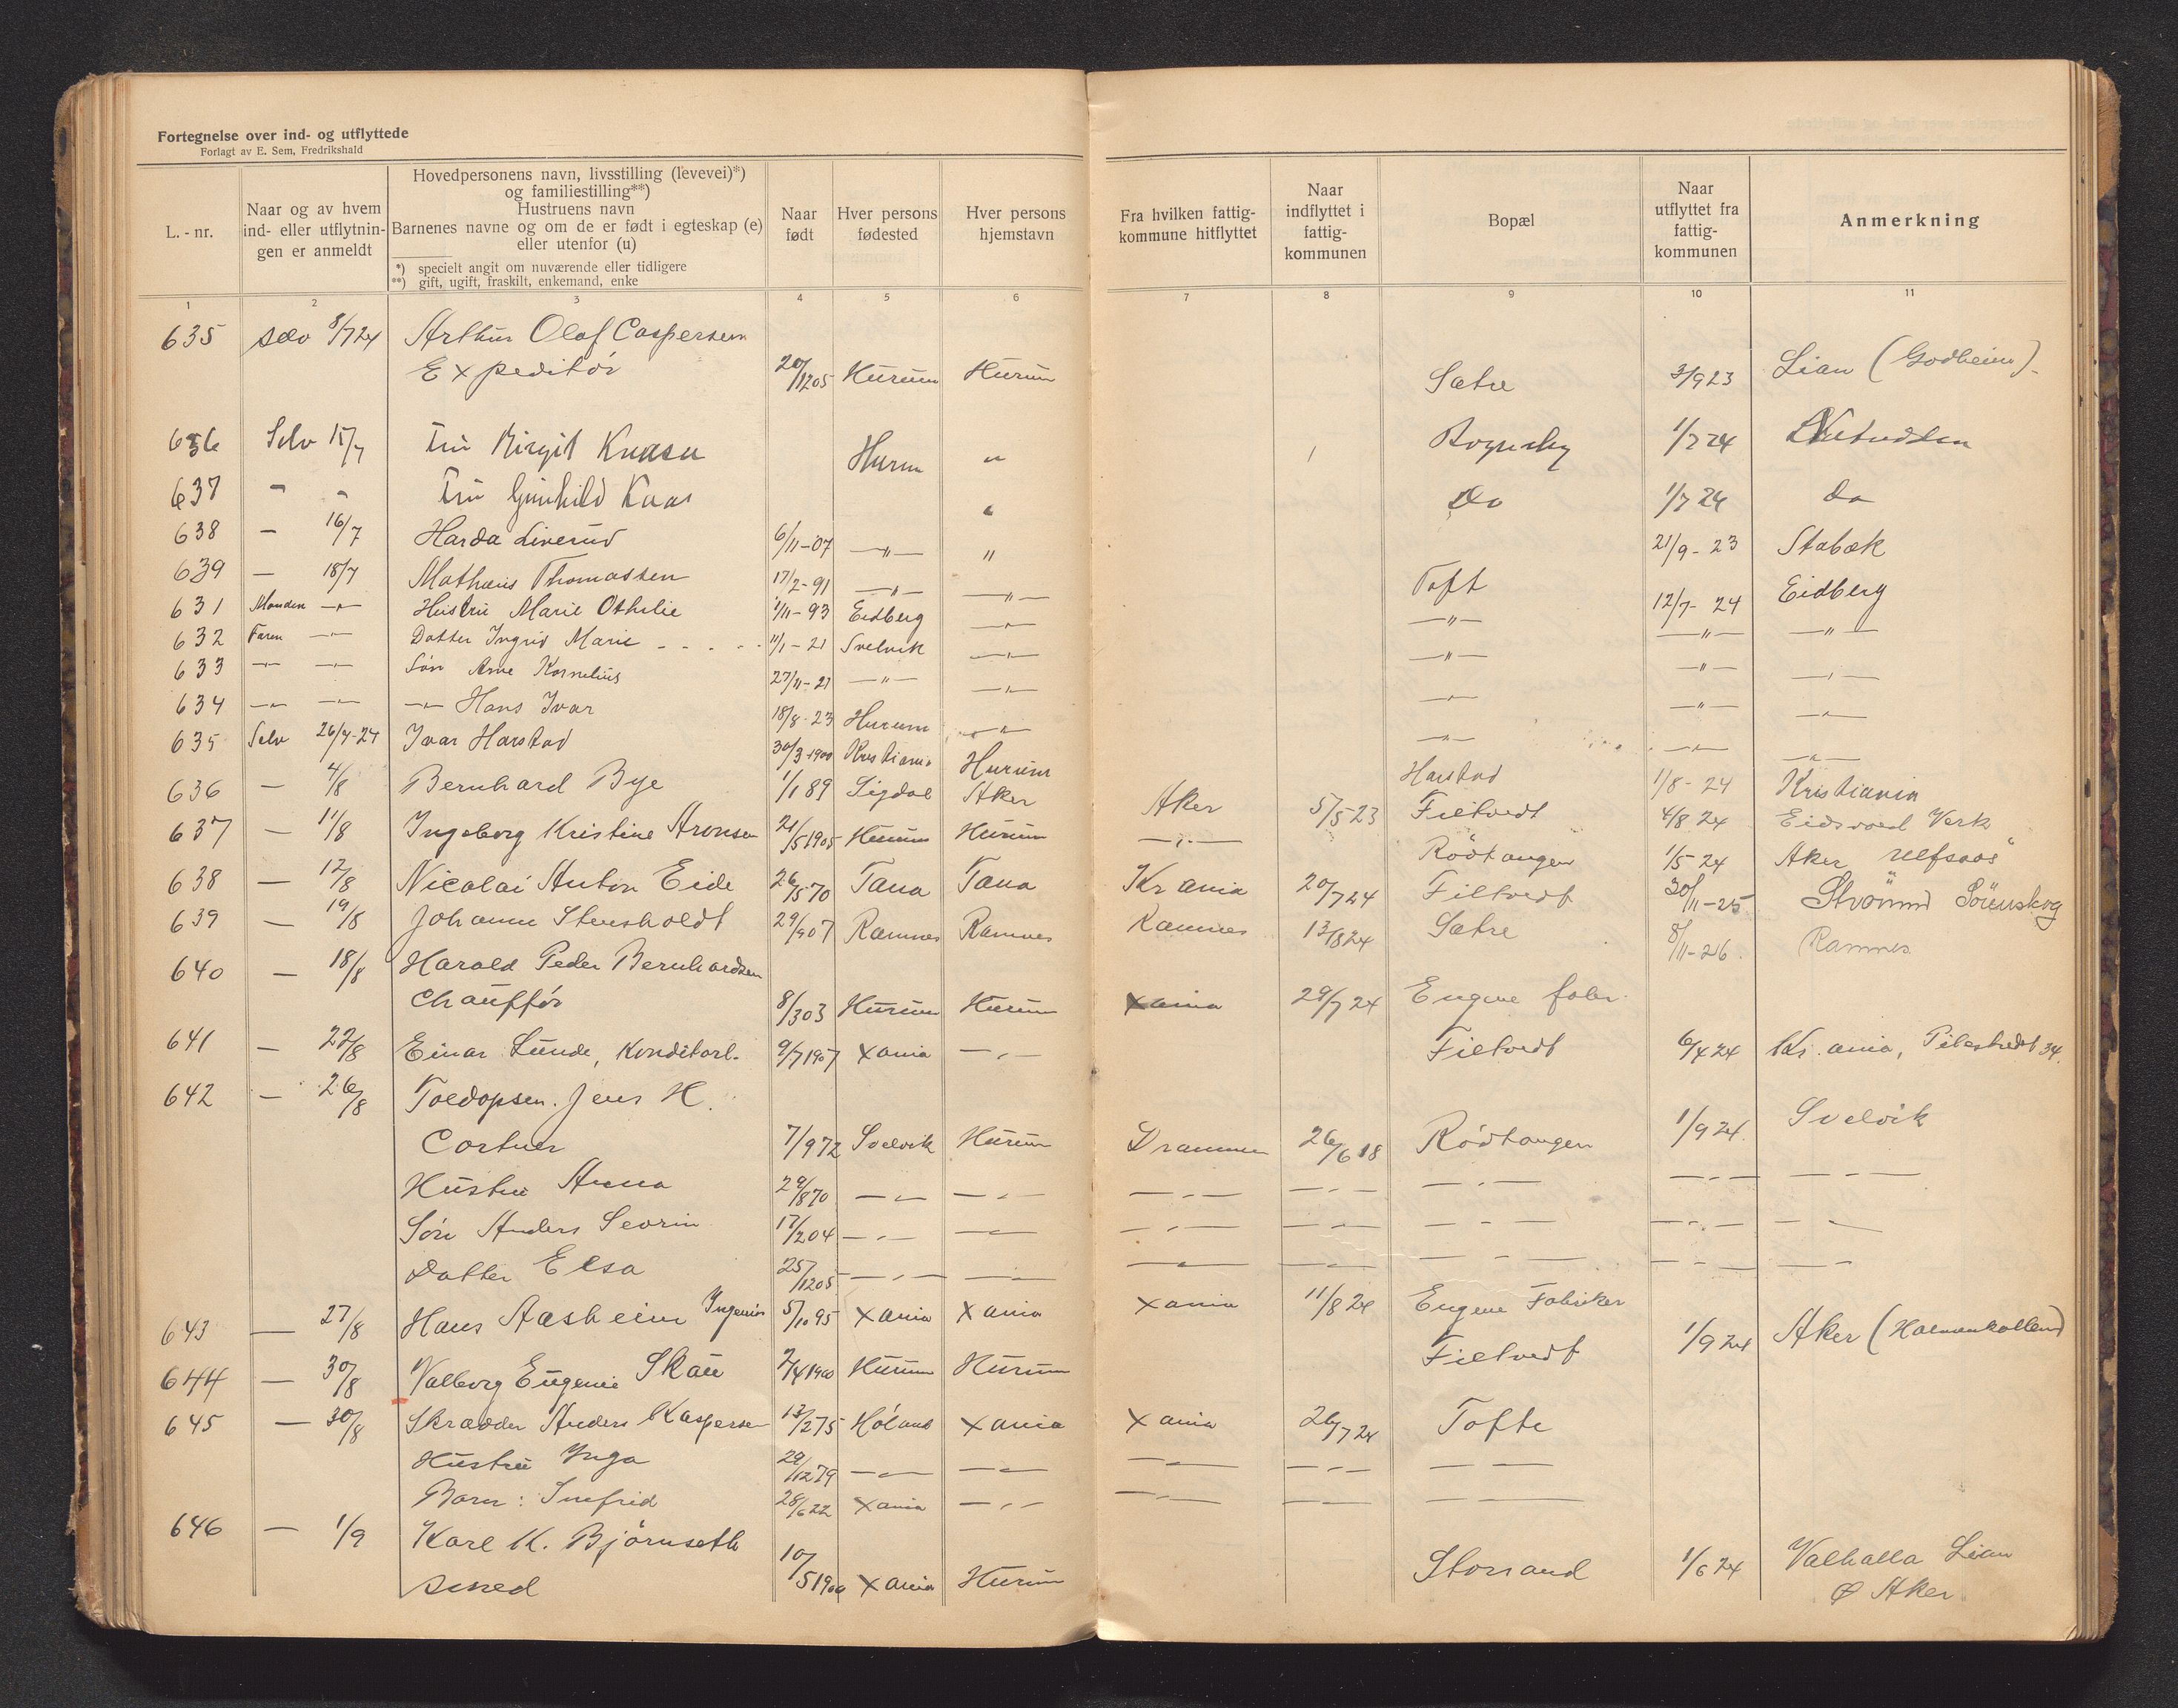 Fortegnelse over ind- og utflyttede
Forlagt av E. Sem, Fredrikshald
L.-nr.
Naar og av hvem ind- eller utflytnin-gen er anmeldt
Hovedpersonens navn, livsstilling (levevei)*)
og familiestilling**)
Hustruens navn
Barnenes navne og om de er født i egteskap (e)
eller utenfor (u)
*) specielt angit om nuværende eller tidligere
**) gift, ugift, fraskilt, enkemand, enke
Naar født
Hver persons fødested
Hver persons hjemstavn
Fra hvilken fattig-kommune hitflyttet
Naar indflyttet i fattig-kommunen
Bopæl
Naar utflyttet fra fattig-kommunen
Anmerkning
1 2 3 4 5 6 7 8 9 10 11
635 selv 8/7 24 Arthur Olaf Caspersen
Expeditör 20/12 05 Hurum Hurum Sætre 3/9 23 Lian (Godheim)
636 Selv 15/7 Fru Birgit Hurum " 1/7 24
637 " " Fru Gunhild Kaas " Do 1/7 24 do
638 — 16/7 Harda Liverud 6/11-07 —"— " 21/9-23 Stabæk
639 — 18/7 Mathæus Thomassen 17/2-91 —"— —"— Toft 12/7-24 Eidberg
631 Manden —"— Hustru Marie Othilie 1/11-93 Eidberg —"— —"— —"— —"—
632 Faren —"— Datter Ingrid Marie 11/1-21 Svelvik —"— —"— —"— —"—
633 —"— —"— Søn Arne Kornelius 27/11-21 —"— —"— —"— —"— —"—
634 —"— —"— —"— Hans Ivar 18/8-23 Hurum —"— —"— —"— —"—
635 Selv 26/7-24 Ivar Harstad 30/3-1900 Kristiania Hurum Harstad 1/8-24 Kristiania
636 — 4/8 Bernhard Bye 1/1 89 Sigdal Aker Aker 5/5 23 Filtvedt 4/8 24 Eidsvold Verk
637 — 11/8 Ingeborg Kristine Aronsen 21/5 1905 Hurum Hurum —"— Rödtangen 1/5 24 Aker "Ulfsaas"
638 — 12/8 Nicolai Anton Eide 26/5 70 Tana Tana Kr ania 20/7 24 Filtvedt 30/11-25 Strömmen Sörenskog
639 — 19/8 Johanne Stensholdt 29/9 07 Ramnes Ramnes Ramnes 13/8 24 Sætre 8/11-26. Ramnes
640 — 18/8 Harald Peder Bernhardsen
Chauffør 8/3 03 Hurum Hurum Xania 29/7 24 Engene fabr.
641 — 22/8 Einar Lunde, Konditorl. 9/7 1907 Xania —"— Filtvedt 6/4 24 Kr.ania, Pilestredt 34.
642 — 26/8 Jens H.
7/9 72 Svelvik Hurum Drammen 26/6 18 Rödtangen 1/9 24. Svelvik
Hustru Anna 29/8 70 —"— —"— —"— —"— —"— —"— —"—
Søn Anders Sevrin 17/2 04 —"— —"— —"— —"— —"— —"— —"—
Datter Elsa 25/12 05 —"— —"— —"— —"— —"— —"— —"—
643 — 27/8 Hans Aasheim Ingeniør 5/10 95 Xania Xania Xania 11/8 24 Engene Fabriker
644 — 30/8 Valborg Eugenie Skau 2/4 1900 Hurum Hurum Filtvedt 1/9 24 Aker (Holmenkollen)
645 — 30/8 Skrædder Anders Kaspersen 13/2 75 Høland Xania Xania 26/7 24 Tofte
Hustru Inga 29/12 79 —"— —"— —"— —"— — —
Barn: Innfrid 28/6 22 Xania —"— —"— — — — —
646 — 1/9 Karl K. Björnseth
smed 10/5 1900 Xania Hurum Storsand 1/6 24 Valhalla Lian
Ø Aker